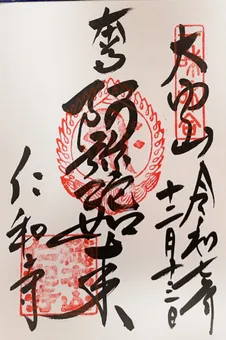 大内山
令和七年
十二月十三日
奉拝
阿弥陀如来
仁和寺